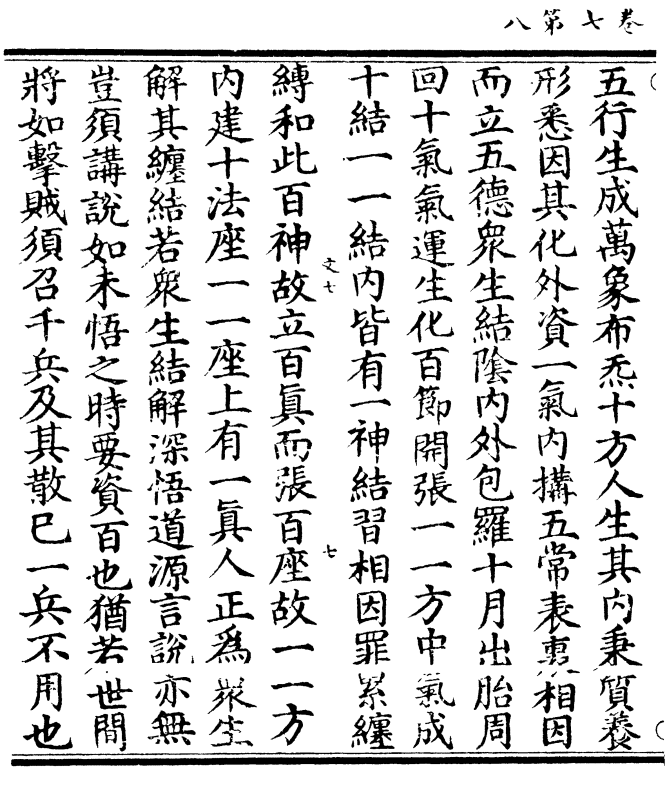 卷七第八
五行生成萬象布炁十方人生其內秉質養
形悉因其化外資一氣內搆五常表裏相因
而立五德眾生結陰內外包羅十月出胎周
回十氣氣運生化百節開張一一方中氣成
十結一一結內皆有一神結習相因罪累纏
縛和此百神故立百真而張百座故一一方
內建十法座一一座上有一真人正為眾生
解其纏結若眾生結解深悟道源言說亦無
豈須講說如未悟之時要資百也猶若世間
將如擊賊須召千兵及其散已一兵不用也
文七
七